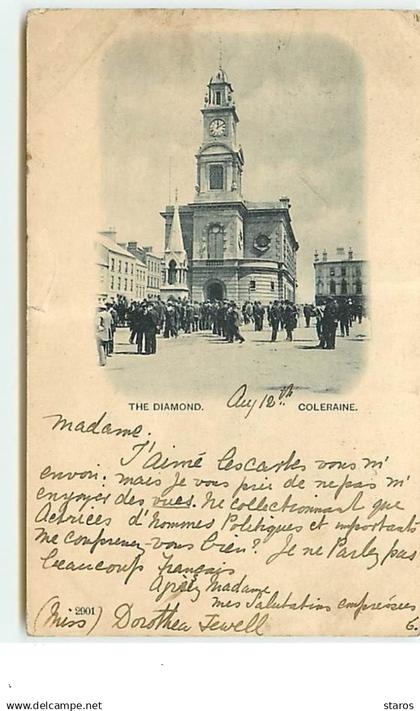 THE DIAMOND. Aug 12th COLERAINE.
Madame.
J'Aimé les cartes vous m'
envoin: mais Je vous prie de ne pas m'
envoyer des vues. Ne collectionnant que
Actrices d'hommes Politiques et importants
me comprenez-vous bien? Je ne Parley pas
beaucoup français
Agréez Madame
mes Salutations empressées
2901
(Miss) Dorothea Jewell
6.
delcampe.net
staros